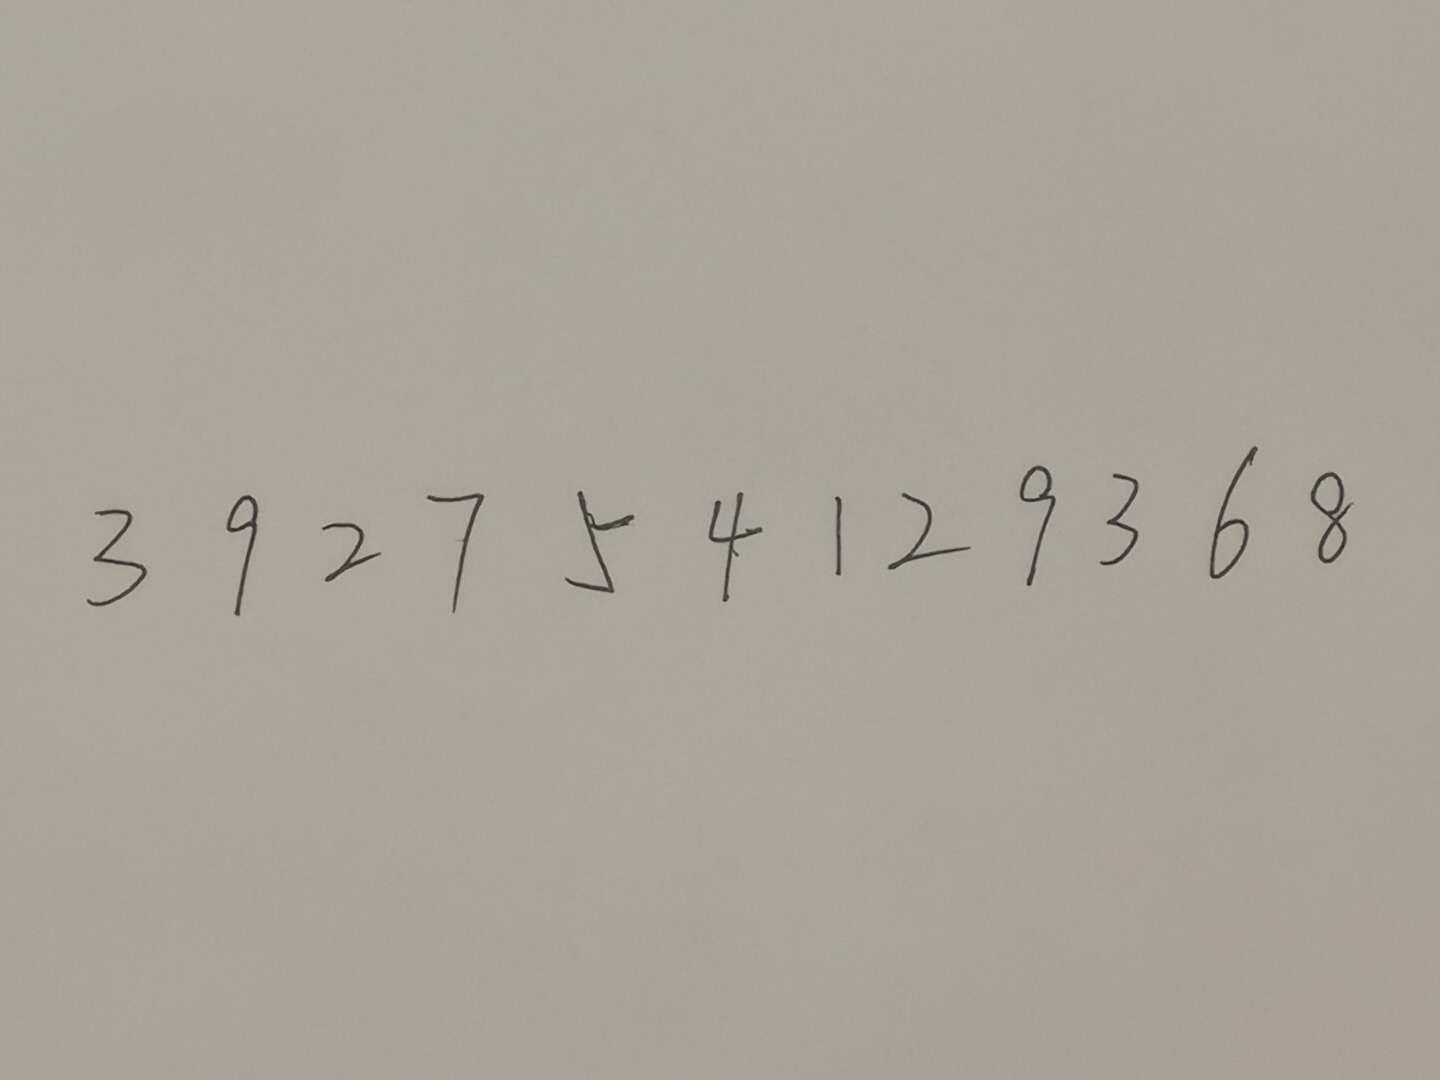 3 9 2 7 5 4 1 2 9 3 6 8